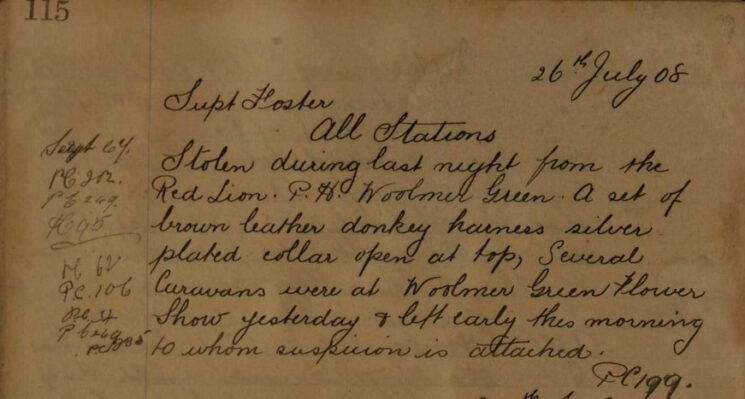 115
26th July 08
Supt Foster
All Stations
Stolen during last night from the
Red Lion. P. H. Woolmer Green. A set of
brown leather donkey harness silver
plated collar open at top, Several
Caravans were at Woolmer Green Flower
Show yesterday & left early this morning
to whom suspicion is attached.
PC 199.
Sergt 64.
PC 202.
PC 249.
62
PC. 106